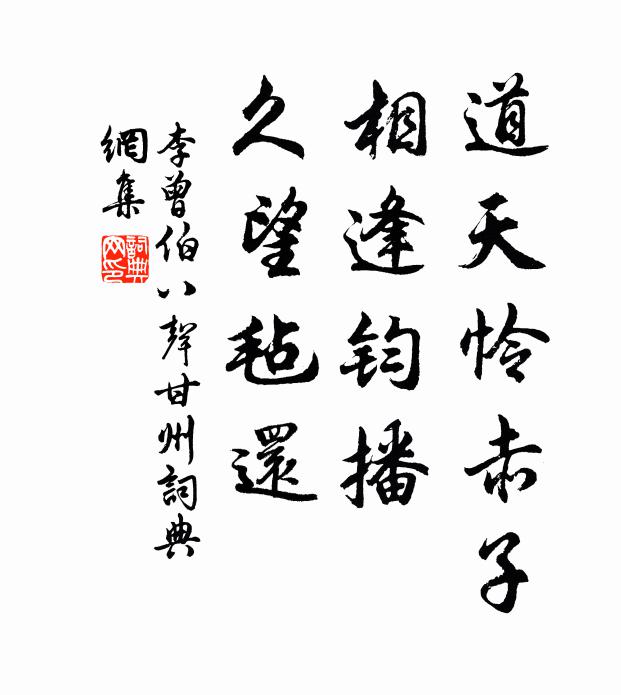 道天怜赤子
相逢钧播
久望毡還
李曾伯八聲甘州詞典
網集
詞典网印